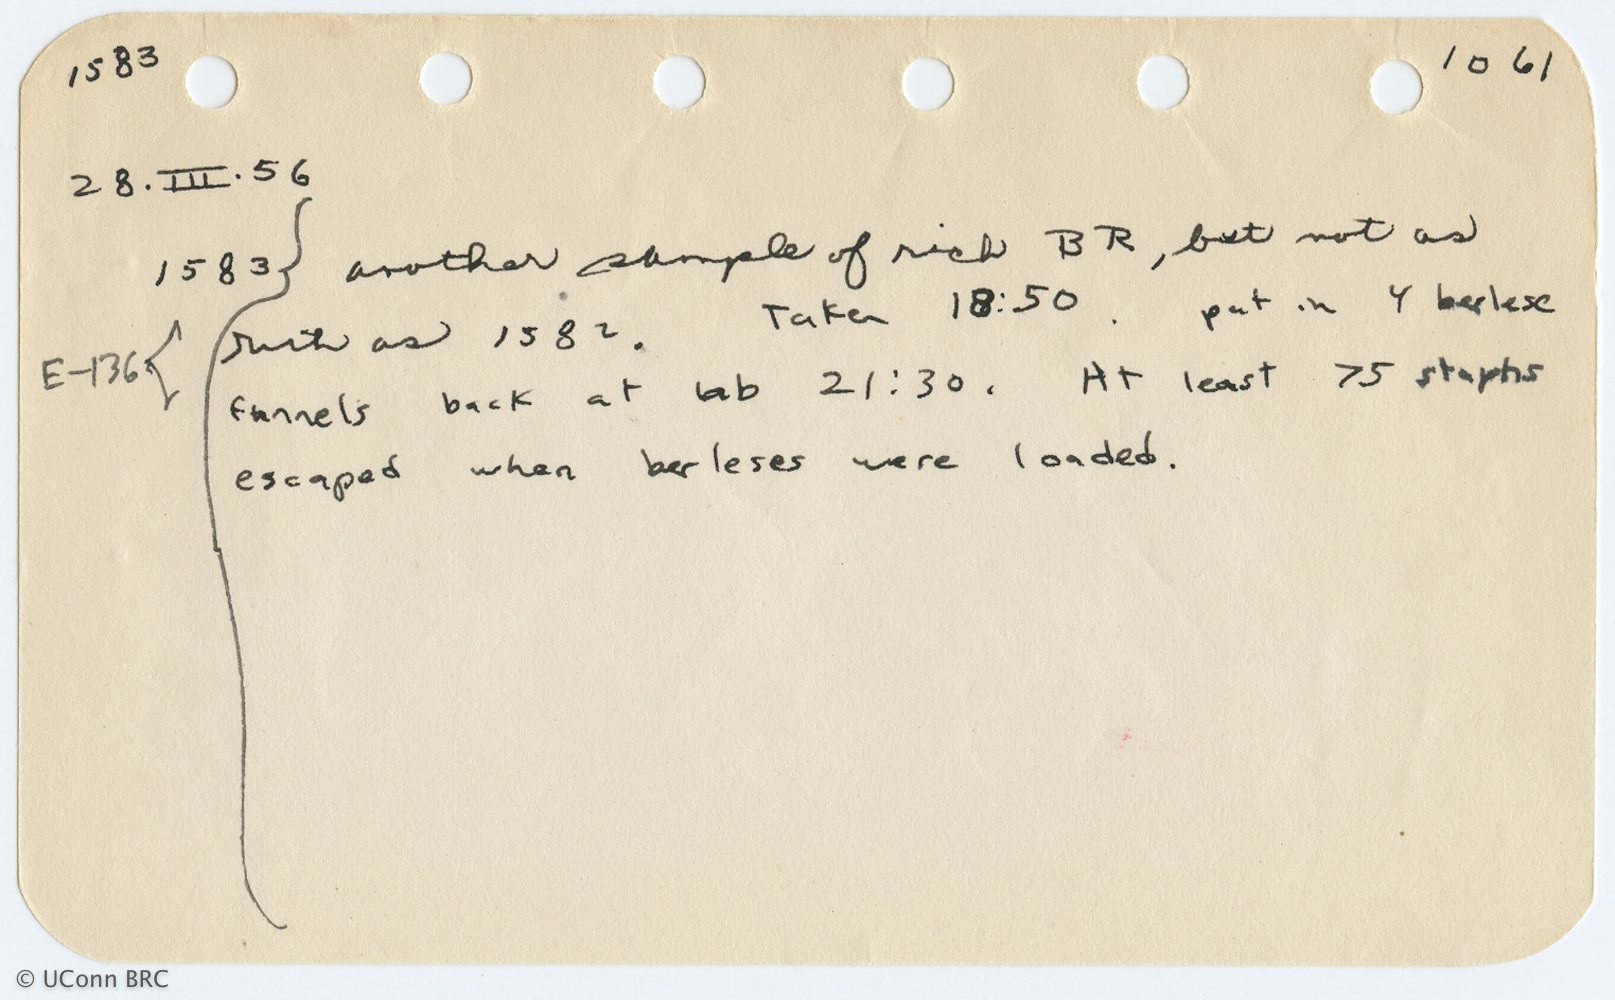 1583 1061
28.III.56
1583 another sample of rich BR, but not as
rich as 1582. Taken 18:50. put in 4 berlese
E-136 funnels back at lab 21:30. At least 75 staphs
escaped when berleses were loaded.
© UConn BRC